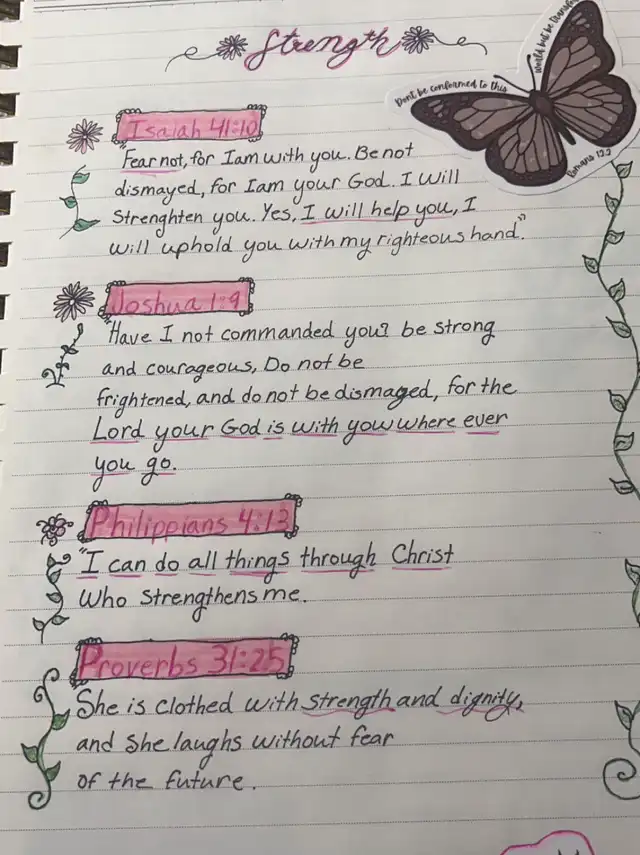 Strength
Don't be conformed to this
World but be transfor
Romans 12:2
Isaiah 41:10
"Fear not, for I am with you. Be not
dismayed, for I am your God. I Will
Strenghten you. Yes, I will help you, I
will uphold you with my righteous hand."
Joshua 1:9
"Have I not commanded you? be strong
and courageous, Do not be
frightened, and do not be dismaged, for the
Lord your God is with you where ever
you go.
Philippians 4:13
"I can do all things through Christ
Who strengthens me.
Proverbs 31:25
She is clothed with strength and dignity,
and She laughs without fear
of the future.